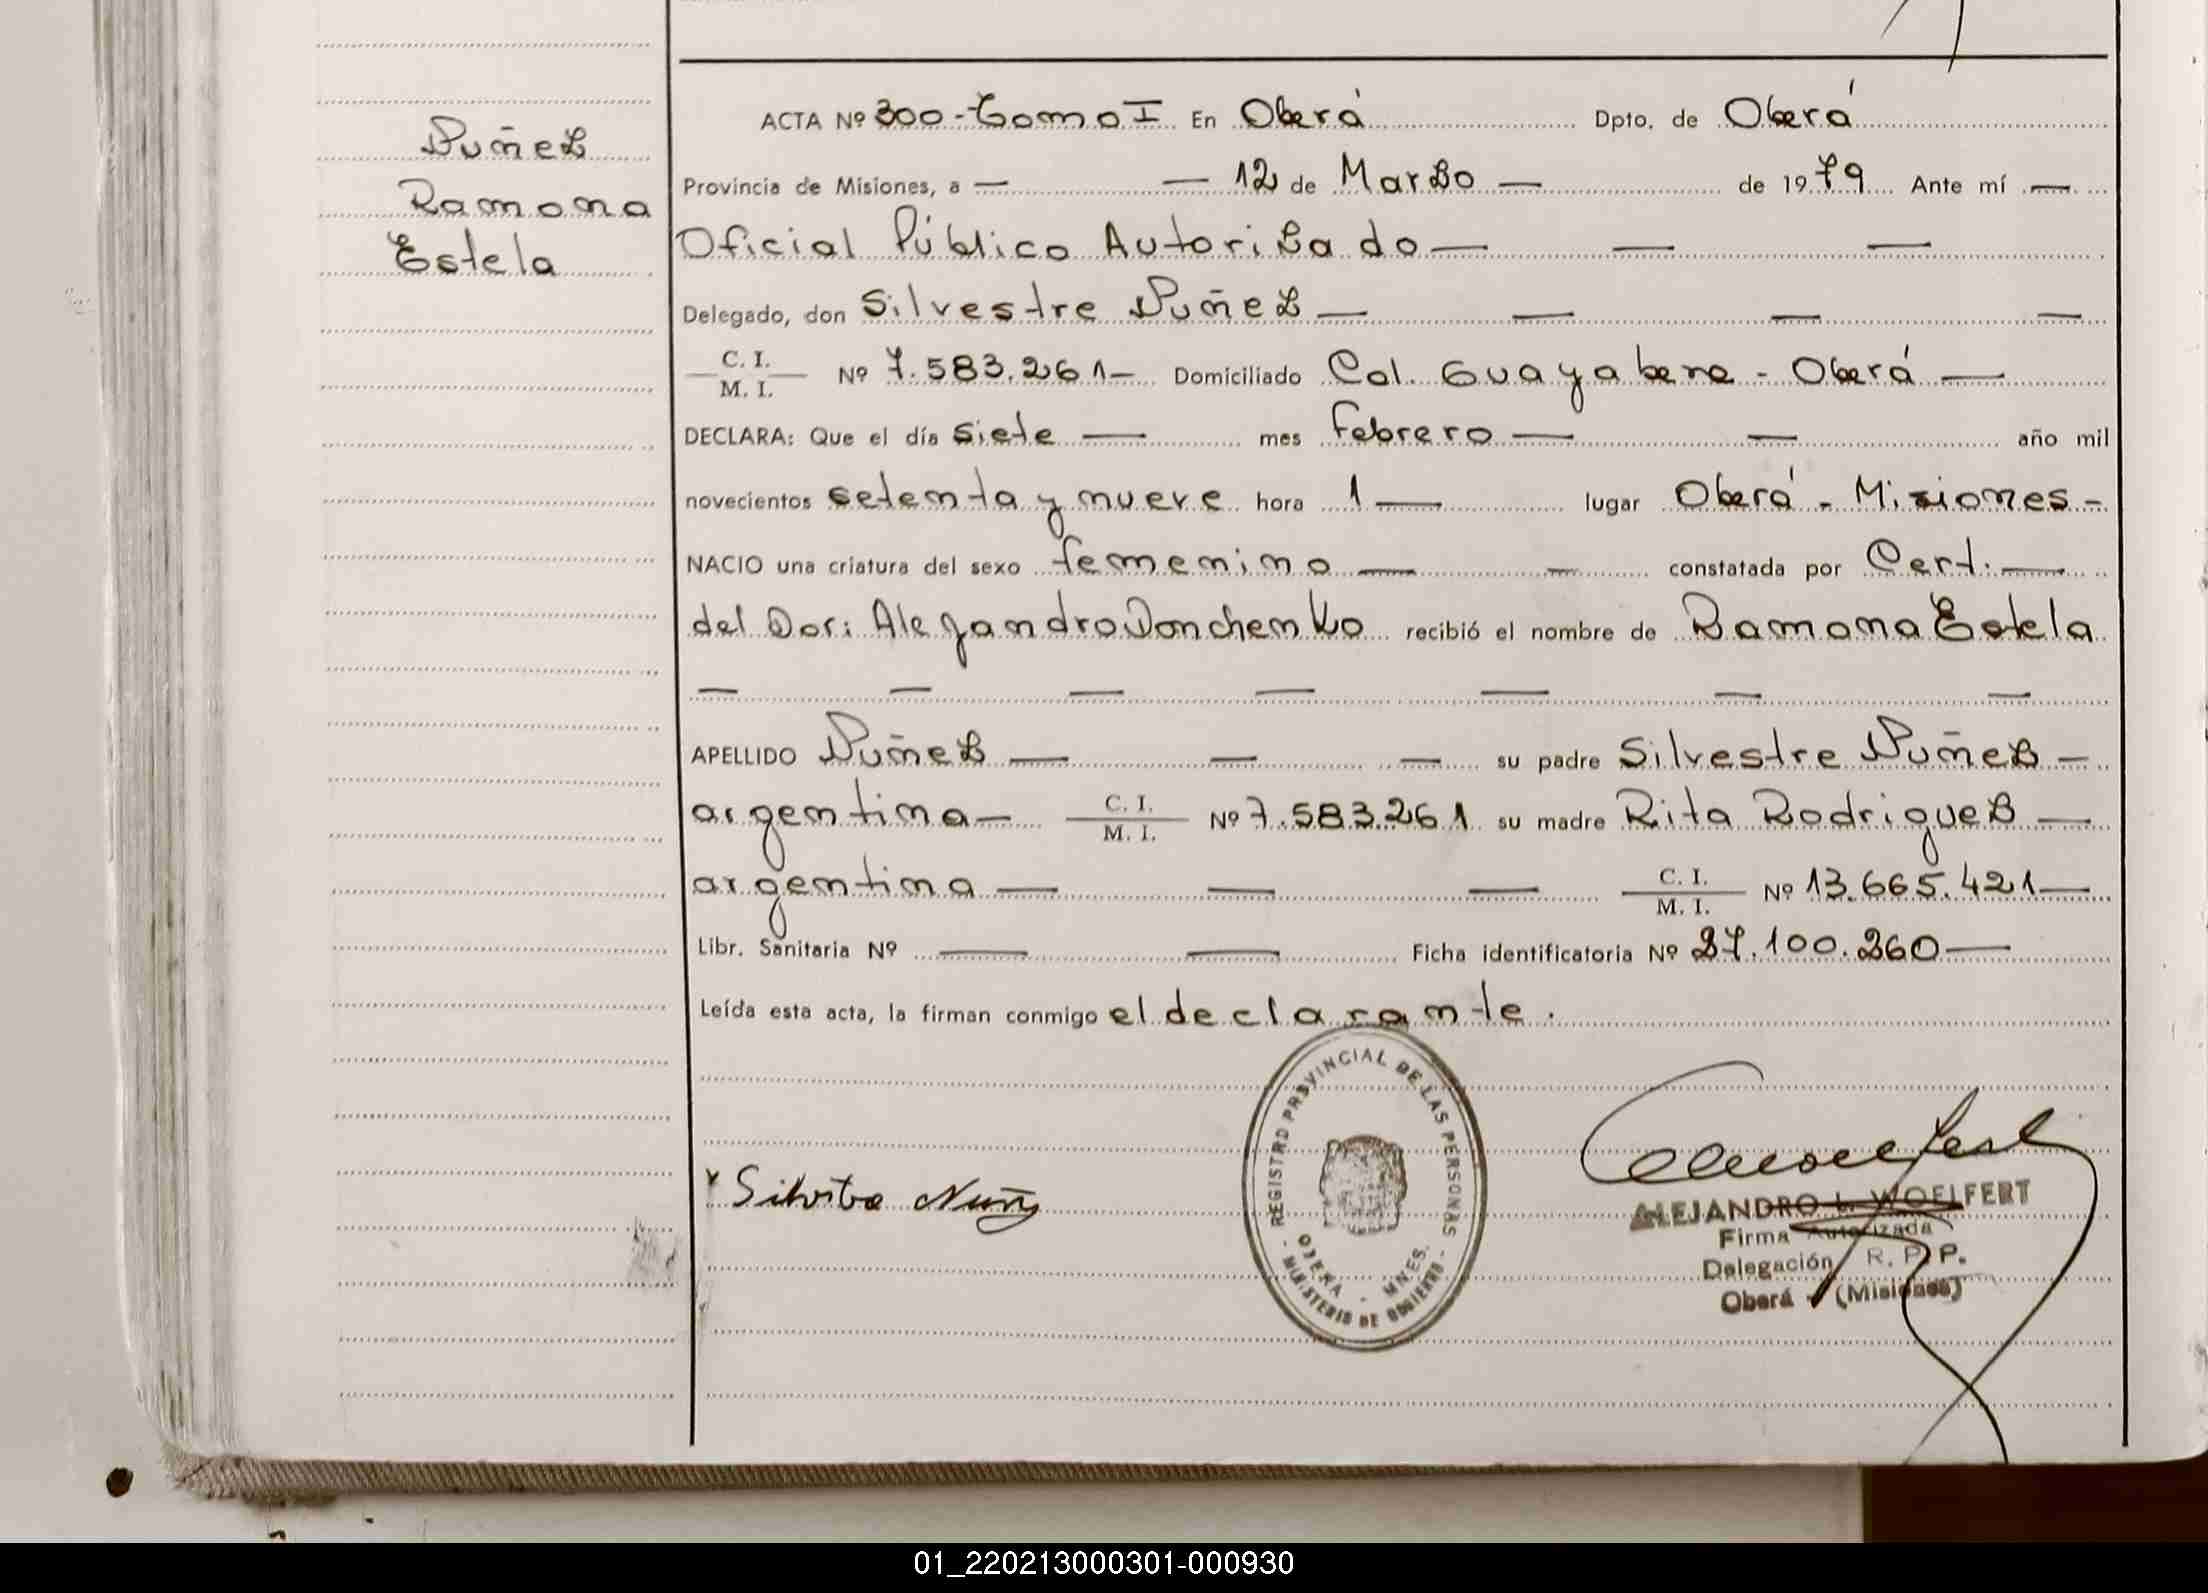 Nuñez
Ramona
Estela
ACTA Nº 300 - Tomo I En Oberá Dpto. de Oberá
Provincia de Misiones, a — — 12 de Marzo — de 1979 Ante mí —
Oficial Público Autorizado — — —
Delegado, don Silvestre Nuñez — — — —
C. I.
M. I. Nº 7.583.261 — Domiciliado Col. Guayabera - Oberá —
DECLARA: Que el día siete — mes febrero — — año mil
novecientos setenta y nueve hora 1 — lugar Oberá - Misiones -
NACIO una criatura del sexo femenino — — constatada por Cert. —
del Dor: Alejandro Donchenko recibió el nombre de Ramona Estela
— — — — — — —
APELLIDO Nuñez — — — su padre Silvestre Nuñez —
argentina — C. I. / M. I. Nº 7.583.261 su madre Rita Rodriguez —
argentina — — — C. I. / M. I. Nº 13.665.421 —
Libr. Sanitaria Nº — — Ficha identificatoria Nº 27.100.260 —
Leída esta acta, la firman conmigo el declarante.
REGISTRO PROVINCIAL DE LAS PERSONAS
OBERA - MNES.
- MINISTERIO DE GOBIERNO -
ALEJANDRO L. WOELFERT
Firma Autorizada
Delegación R. P. P.
Oberá - (Misiones)
01_220213000301-000930